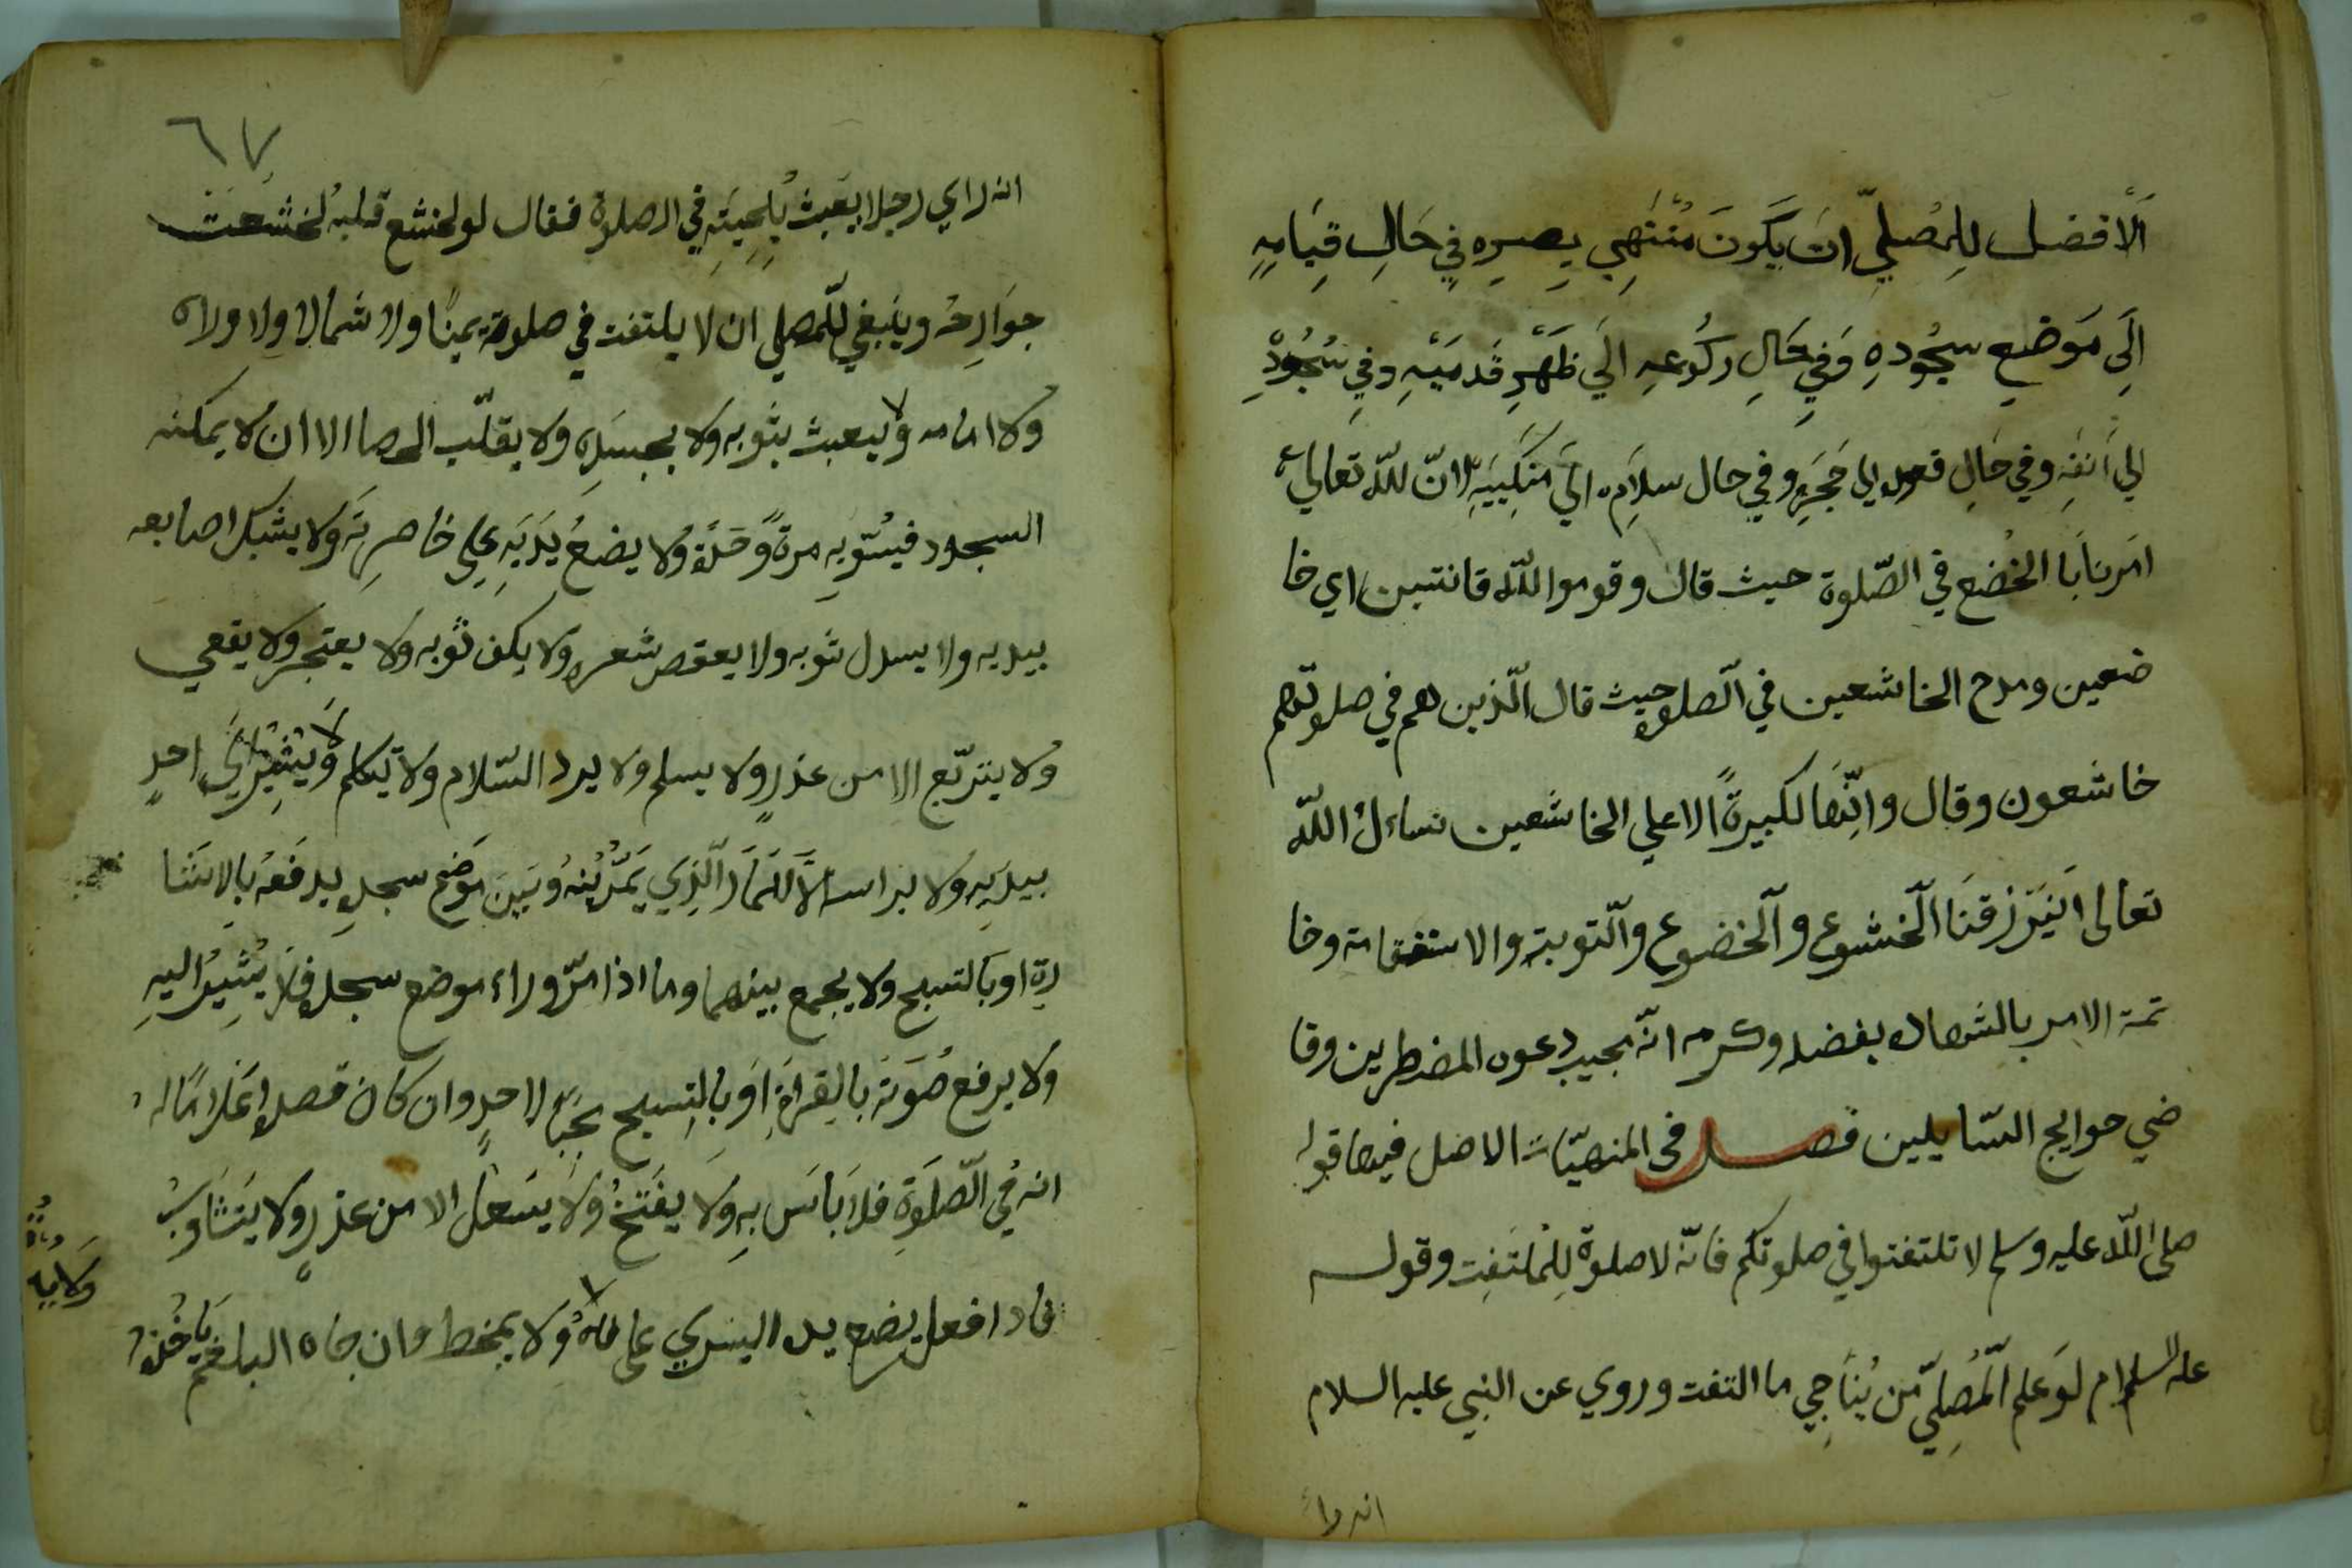 اَلْافضل لِلمُصلّي ان يَكونَ مُنْتَهِي بصرِه فِي حَالِ قِيَامِهِ
الَى مَوضع سجُودهِ وَفي حَالِ ركُوعهِ الَي ظَهْرِ قَدمَيْهِ وفي سُجُودِ
الي اَنفَهِ وفي حَالِ قعوده الي حَجَرِهِ وفي حال سلاَمِه الَيَ مَنكِبَيَهِ لانّ للّه تعالي
امَرنا بَا الخُضع في الصّلوة حيث قال وقوموا للّه قانتين اي خا
ضعين ومدح الخاشعين في الّصلوه حيث قال الّذين هم في صلوتهم
خاشعون وقال وانّها لكبيرةً الا علي الخاشعين نساءل اللّه
تعالى اَنيَرزقنَا الّخشوع وآلخضوع وآلتوبة والاستقامة وخا
تمة الامر بالشهادة بفضله وكرمه انّه مجيب دعوه المضطرين وقا
ضي حوايج السّايلين فصل في المنهيّات الاصل فيها قوله
صلى اللّه عليه وسلم لا تلتفتوا في صلوتكم فانّه لا صلوة لِلمُلتَفِت وقوله
عليه السلام لوَ علم الّمُصِلّي مّن يُنَاجِي ما التفت وروي عن النبي عليه السلام
٦٧
انه راي رجلا يعَبث بِلِحِيتَهِ في الصلوة فقال لو لخشع قلبهُ لخشَعَت
جوَارِحُه وينَبغي للّمصلي ان لا يلتفت في صلوته يمينًا ولا شمالا ولا ولاه
وُلا امامه ولا يعبث بثوبه ولا بجسَدِه ولا يقلّب الحصا الا ان لا يمكنه
السجود فيُسّويهِ مرةً وَحدَةً ولا يضعُ يَدَيَهِ علي خاصرِتَه وَلا يشبك اصابعه
بيديه ولا يسدل ثوَبه ولا يعقص شعره ولا يكف ثوبه ولا يعتجر ولا يقعي
وُلا يتربّع الا من عذرٍ ولا يسلم ولا يرد السّلام ولا تيكلم ولا يُشِيرُ الَي احدٍ
بيدَيهِ ولا براسه الاّ للمَارَ الّذِي يَمُرّ بُيْنهُ وبَينَ مَوَضع سجدِ يدفَعهُ بالاشَا
رة او بَالتسبح ولا يجمع بينهما وما اذا مرّ وراء موضع سجده فلاَ يُشِيُر اليهِ
وَلا يرفع صُوَتَه بالقِراَةِ اوَ بِالِتسبيح لاحدٍ وان كان قصدهُ اعَلامًا له
انه في الّصلَوَةِ فلاَ بَاسَ بِهِ وَلا ولاَ يسَعل الا من عذرٍ ولا يتثَاوَبُ
فاذا فعل يضع يده اليسري على فاهُ وَلا يمخط وان جاه البلغم يَاخُذه